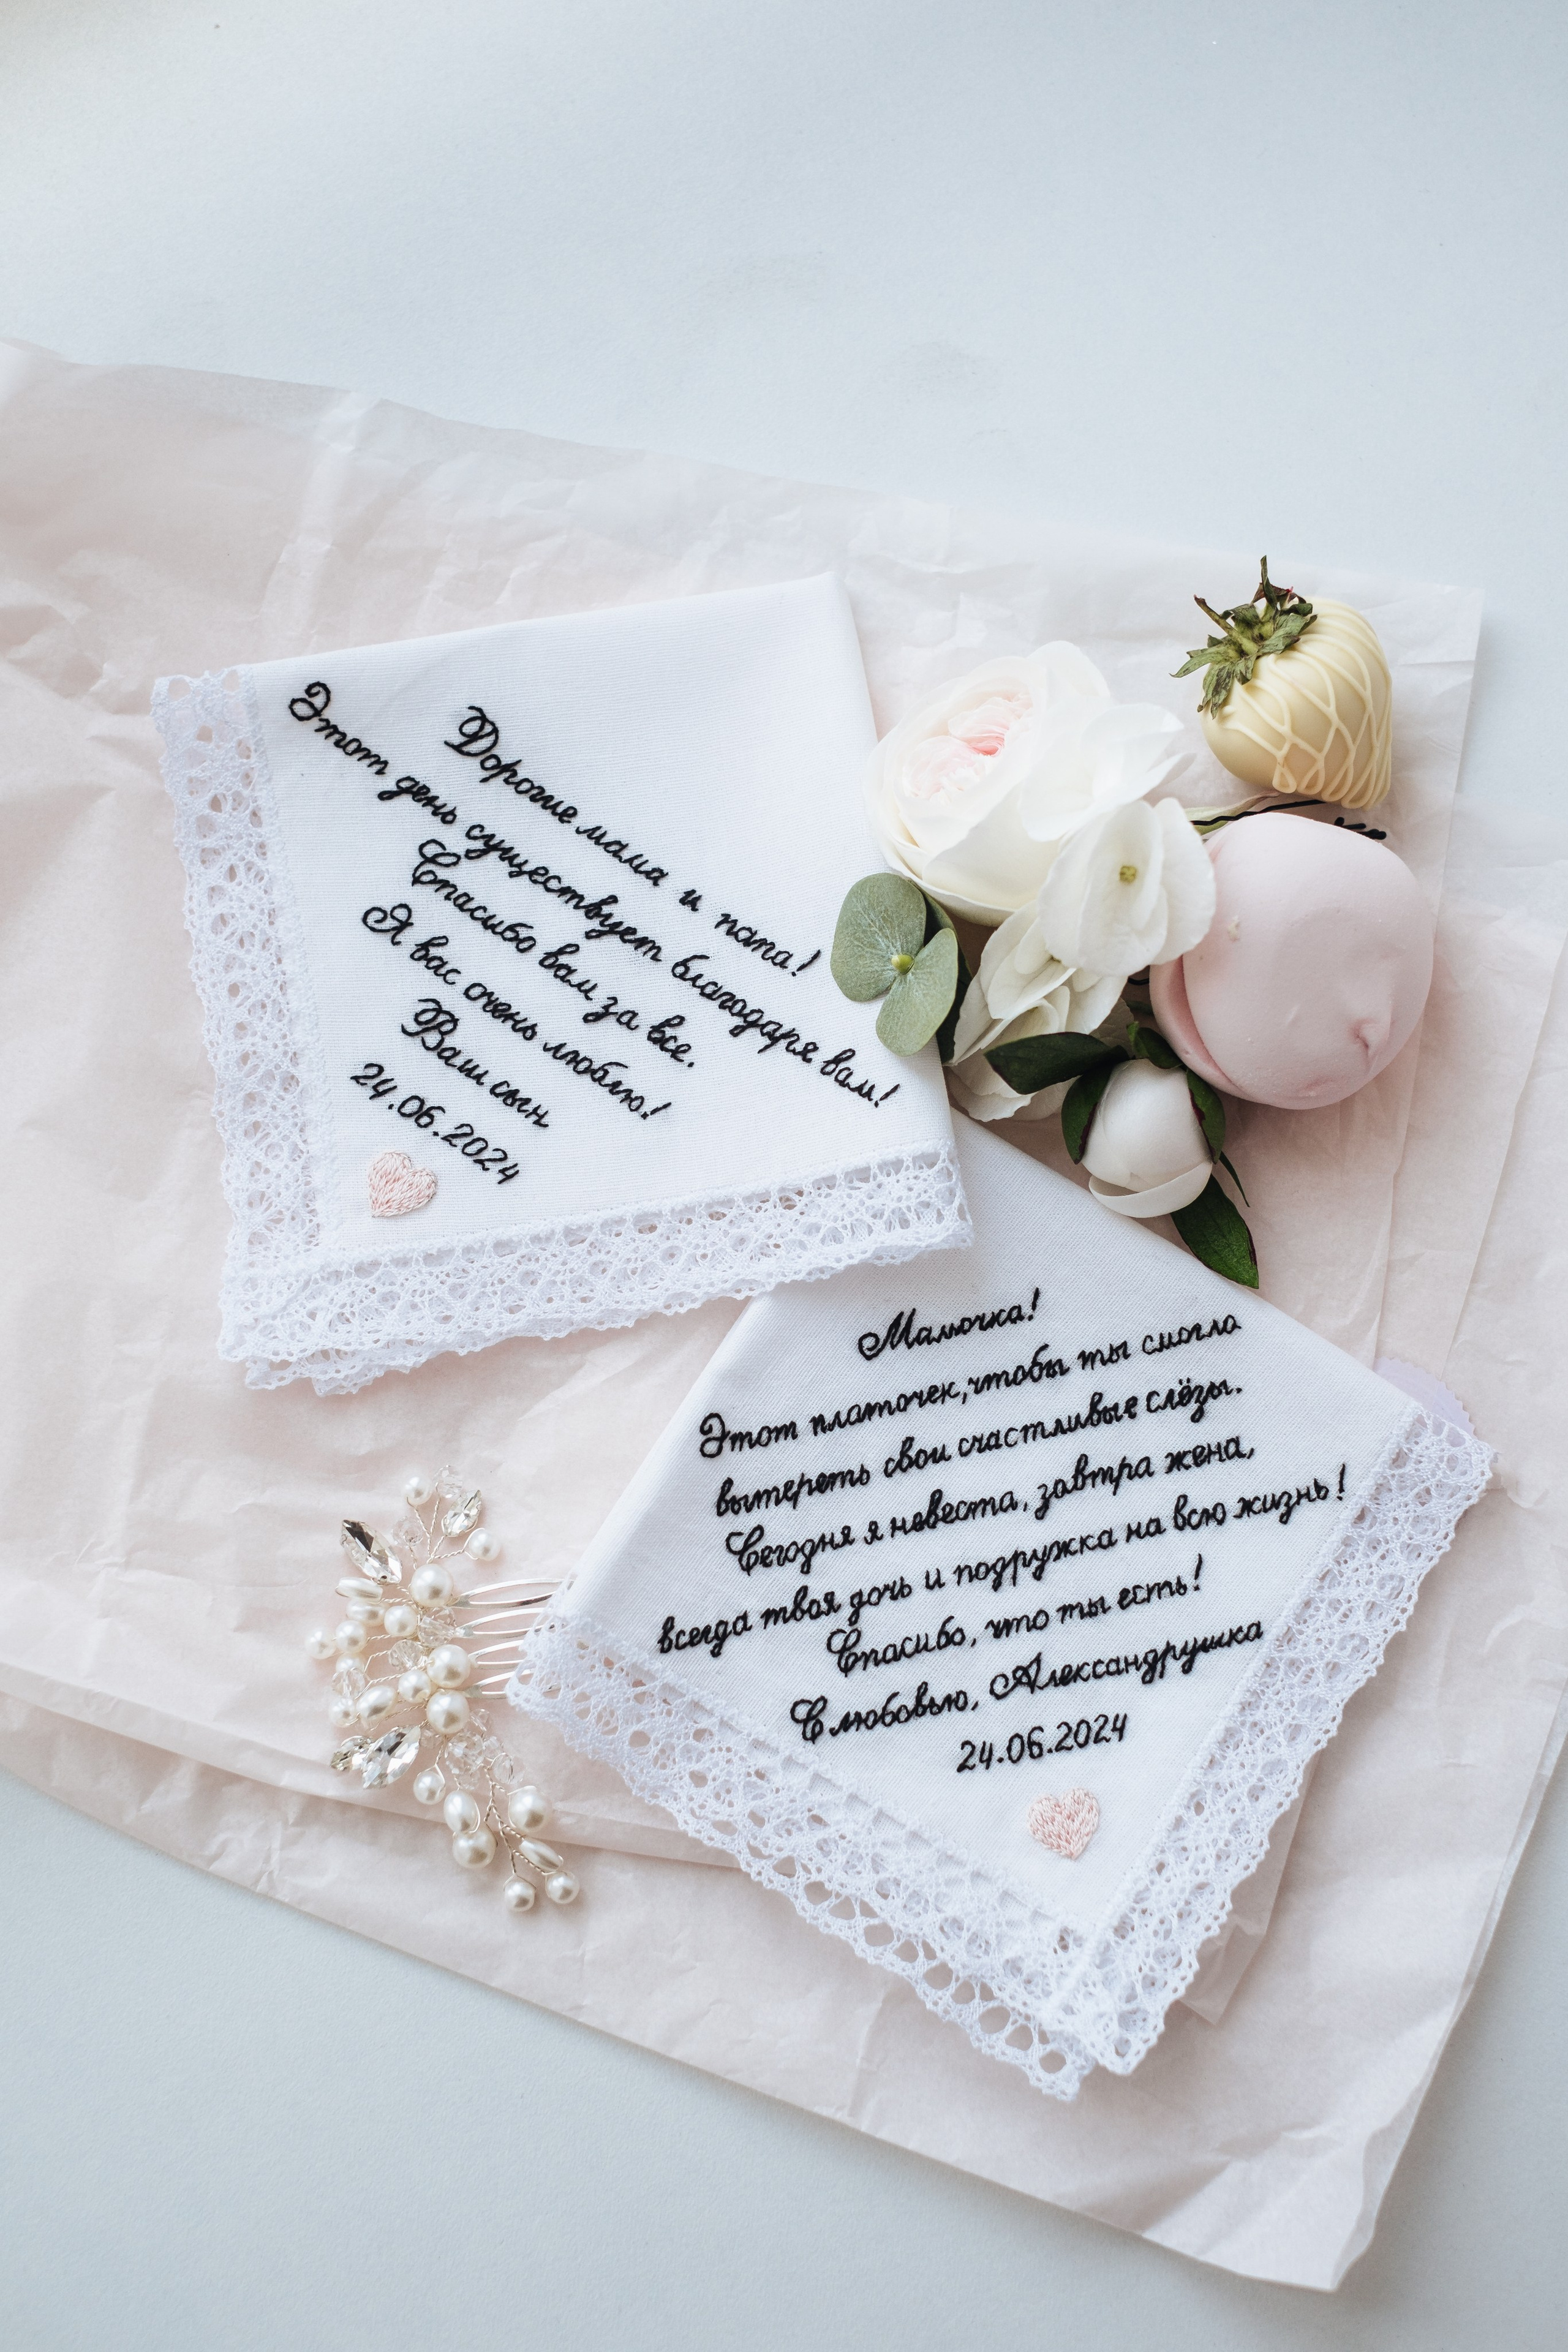 Дорогие мама и папа!
Этот день существует благодаря вам!
Спасибо вам за все.
Я вас очень люблю!
Ваш сын
24.06.2024
Мамочка!
Этот платочек, чтобы ты смогла
вытереть свои счастливые слёзы.
Сегодня я невеста, завтра жена,
всегда твоя дочь и подружка на всю жизнь!
Спасибо, что ты есть!
С любовью, Александрушка
24.06.2024